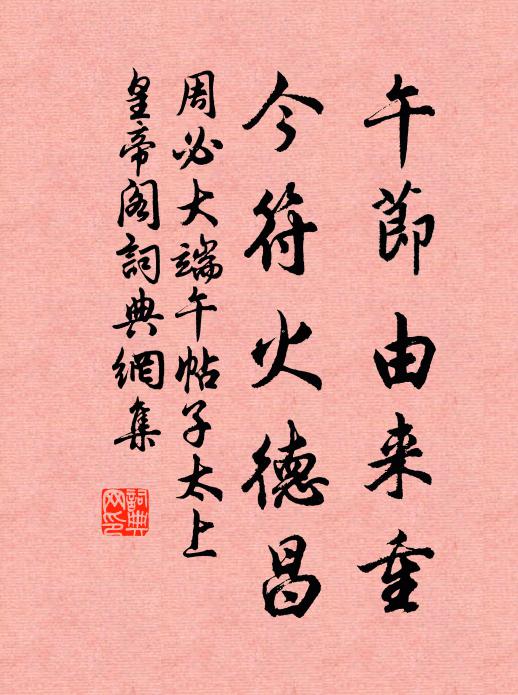 午節由来重
今符火德昌
周必大端午帖子太上
皇帝阁詞典網集
詞典网印